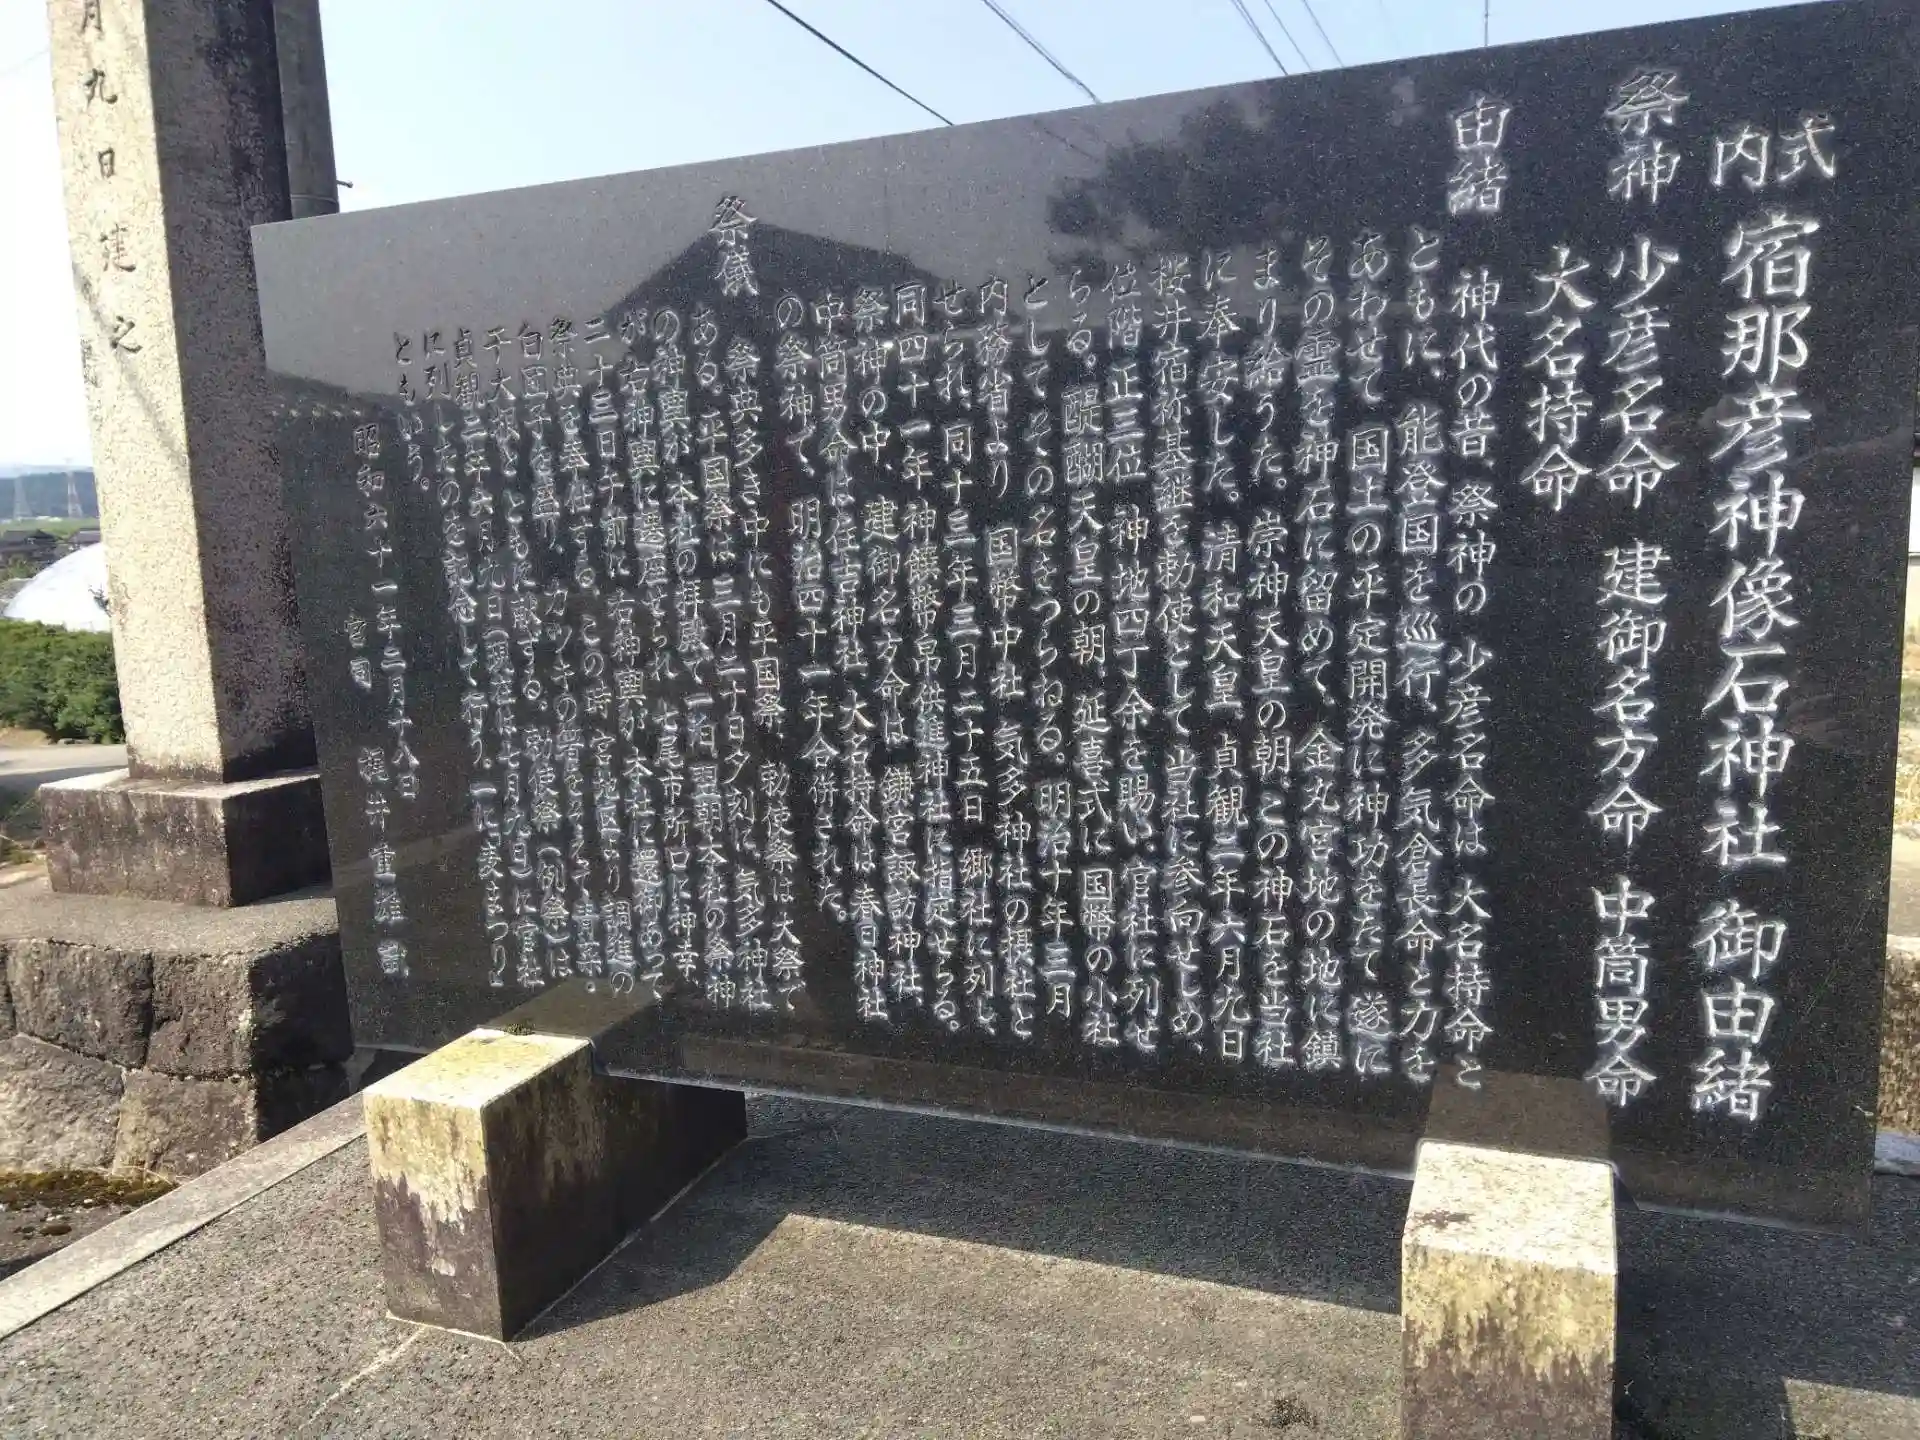 式内 宿那彦神像石神社 御由緒
祭神 少彦名命 建御名方命 中筒男命
大名持命
由緒 神代の昔、祭神の 少彦名命は 大名持命と
ともに、能登国を巡行、多気倉長命と力を
あわせて 国土の平定開発に神功をたて 遂に
その霊を神石に留めて、金丸宮地の地に鎮
まり給うた。崇神天皇の朝、この神石を当社
に奉安した。清和天皇、貞観二年六月九日
桜井宿祢基継を勅使として 当社に参向せしめ、
位階 正三位 神地四丁余を賜い、官社に列せ
らる。醍醐天皇の朝、延喜式に 国幣の小社
としてその名をつらねる。明治十年三月
内務省より 国幣中社 気多神社の摂社と
せられ、同十三年三月二十五日 郷社に列し、
同四十一年 神饌幣帛供進神社に指定せらる。
祭神の中、建御名方命は 鎌宮諏訪神社、
中筒男命は 住吉神社、大名持命は 春日神社
の祭神で、明治四十一年合併された。
祭儀 祭典多き中にも平国祭、勅使祭は大祭で
ある。平国祭は三月二十日夕刻に 気多神社
の神輿が、本社の拝殿で一泊 翌朝本社の祭神
が右神輿に遷座せられ 七尾市所口に神幸、
二十三日午前に 右神輿が 本社に還御あって
祭典を奉仕する。この時 宮地区より調進の
白団子を盛り、カツキの箸をそえて 青菜。
干大根とともに献する。勅使祭（例祭）は
貞観二年六月九日（現在は七月九日）に官社
に列したのを記念して行う。一に麦まつりと
もいう。
昭和六十一年三月十八日
宮司 梶井重雄 識
月九日建之